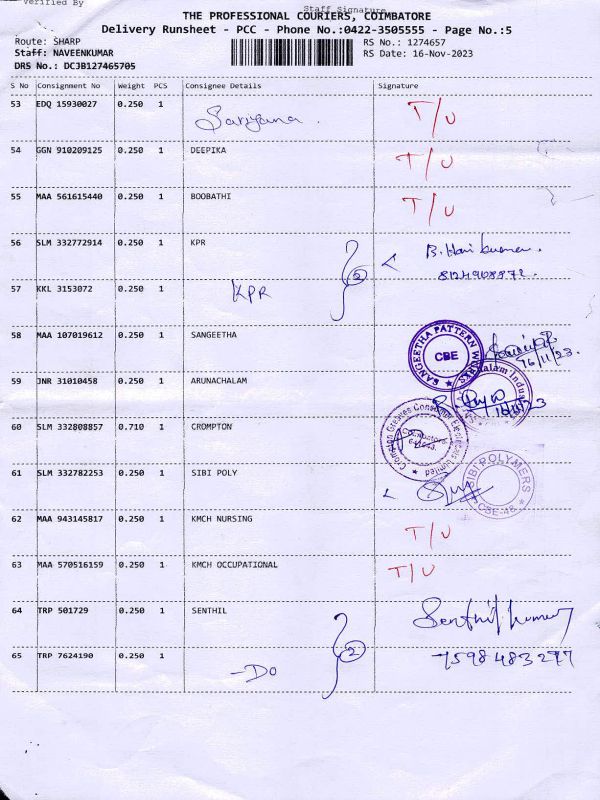 Verified By
Staff Signature
THE PROFESSIONAL COURIERS, COIMBATORE
Delivery Runsheet - PCC - Phone No.:0422-3505555 - Page No.:5
Route: SHARP
RS No.: 1274657
Staff: NAVEENKUMAR
RS Date: 16-Nov-2023
DRS No.: DCJB127465705
S No Consignment No Weight PCS Consignee Details Signature
53 EDQ 15930027 0.250 1 T/U
54 GGN 910209125 0.250 1 DEEPIKA T/U
55 MAA 561615440 0.250 1 BOOBATHI T/U
56 SLM 332772914 0.250 1 KPR 2 B. Hari kumar.
8124908872.
57 KKL 3153072 0.250 1 KPR
58 MAA 107019612 0.250 1 SANGEETHA SANGEETHA PATTERN WORKS CBE 16/11/23.
59 JNR 31010458 0.250 1 ARUNACHALAM
60 SLM 332808857 0.710 1 CROMPTON Crompton Greaves Consumer Electricals Limited Coimbatore
61 SLM 332782253 0.250 1 SIBI POLY SIBI POLYMERS CBE-48
62 MAA 943145817 0.250 1 KMCH NURSING T/U
63 MAA 570516159 0.250 1 KMCH OCCUPATIONAL T/U
64 TRP 501729 0.250 1 SENTHIL 2 Senthil kumar
65 TRP 7624190 0.250 1 -DO 7598483277